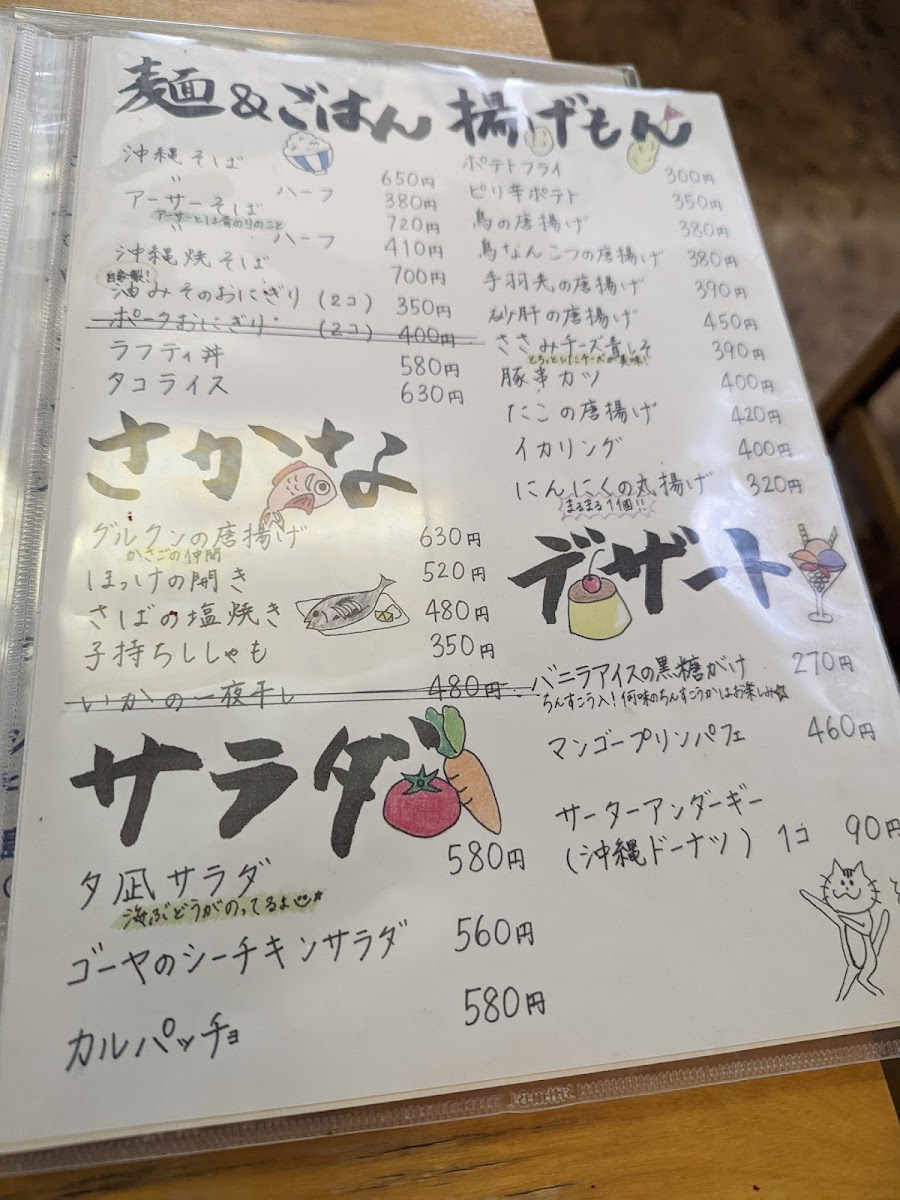 麺&ごはん
沖縄そば 650円
〃 ハーフ 380円
アーサーそば 720円
アーサーとは青のりのこと
〃 ハーフ 410円
沖縄焼そば 700円
自家製!
油みそのおにぎり (2コ) 350円
ポークおにぎり (2コ) 400円
ラフティ丼 580円
タコライス 630円
さかな
グルクンの唐揚げ 630円
かさごの仲間
ほっけの開き 520円
さばの塩焼き 480円
子持ちししゃも 350円
いかの一夜干し 480円
サラダ
夕凪サラダ 580円
海ぶどうがのってるよ
ゴーヤのシーチキンサラダ 560円
カルパッチョ 580円
揚げもん
ポテトフライ 300円
ピリ辛ポテト 350円
鳥の唐揚げ 380円
鳥なんこつの唐揚げ 380円
手羽先の唐揚げ 390円
砂肝の唐揚げ 450円
ささみチーズ青しそ 390円
とろっとしたチーズが美味!
豚串カツ 400円
たこの唐揚げ 420円
イカリング 400円
にんにくの丸揚げ 320円
まるまる1個!!
デザート
バニラアイスの黒糖がけ 270円
ちんすこう入!何味のちんすこうかはお楽しみ☆
マンゴープリンパフェ 460円
サーターアンダーギー
(沖縄ドーナツ) 1コ 90円